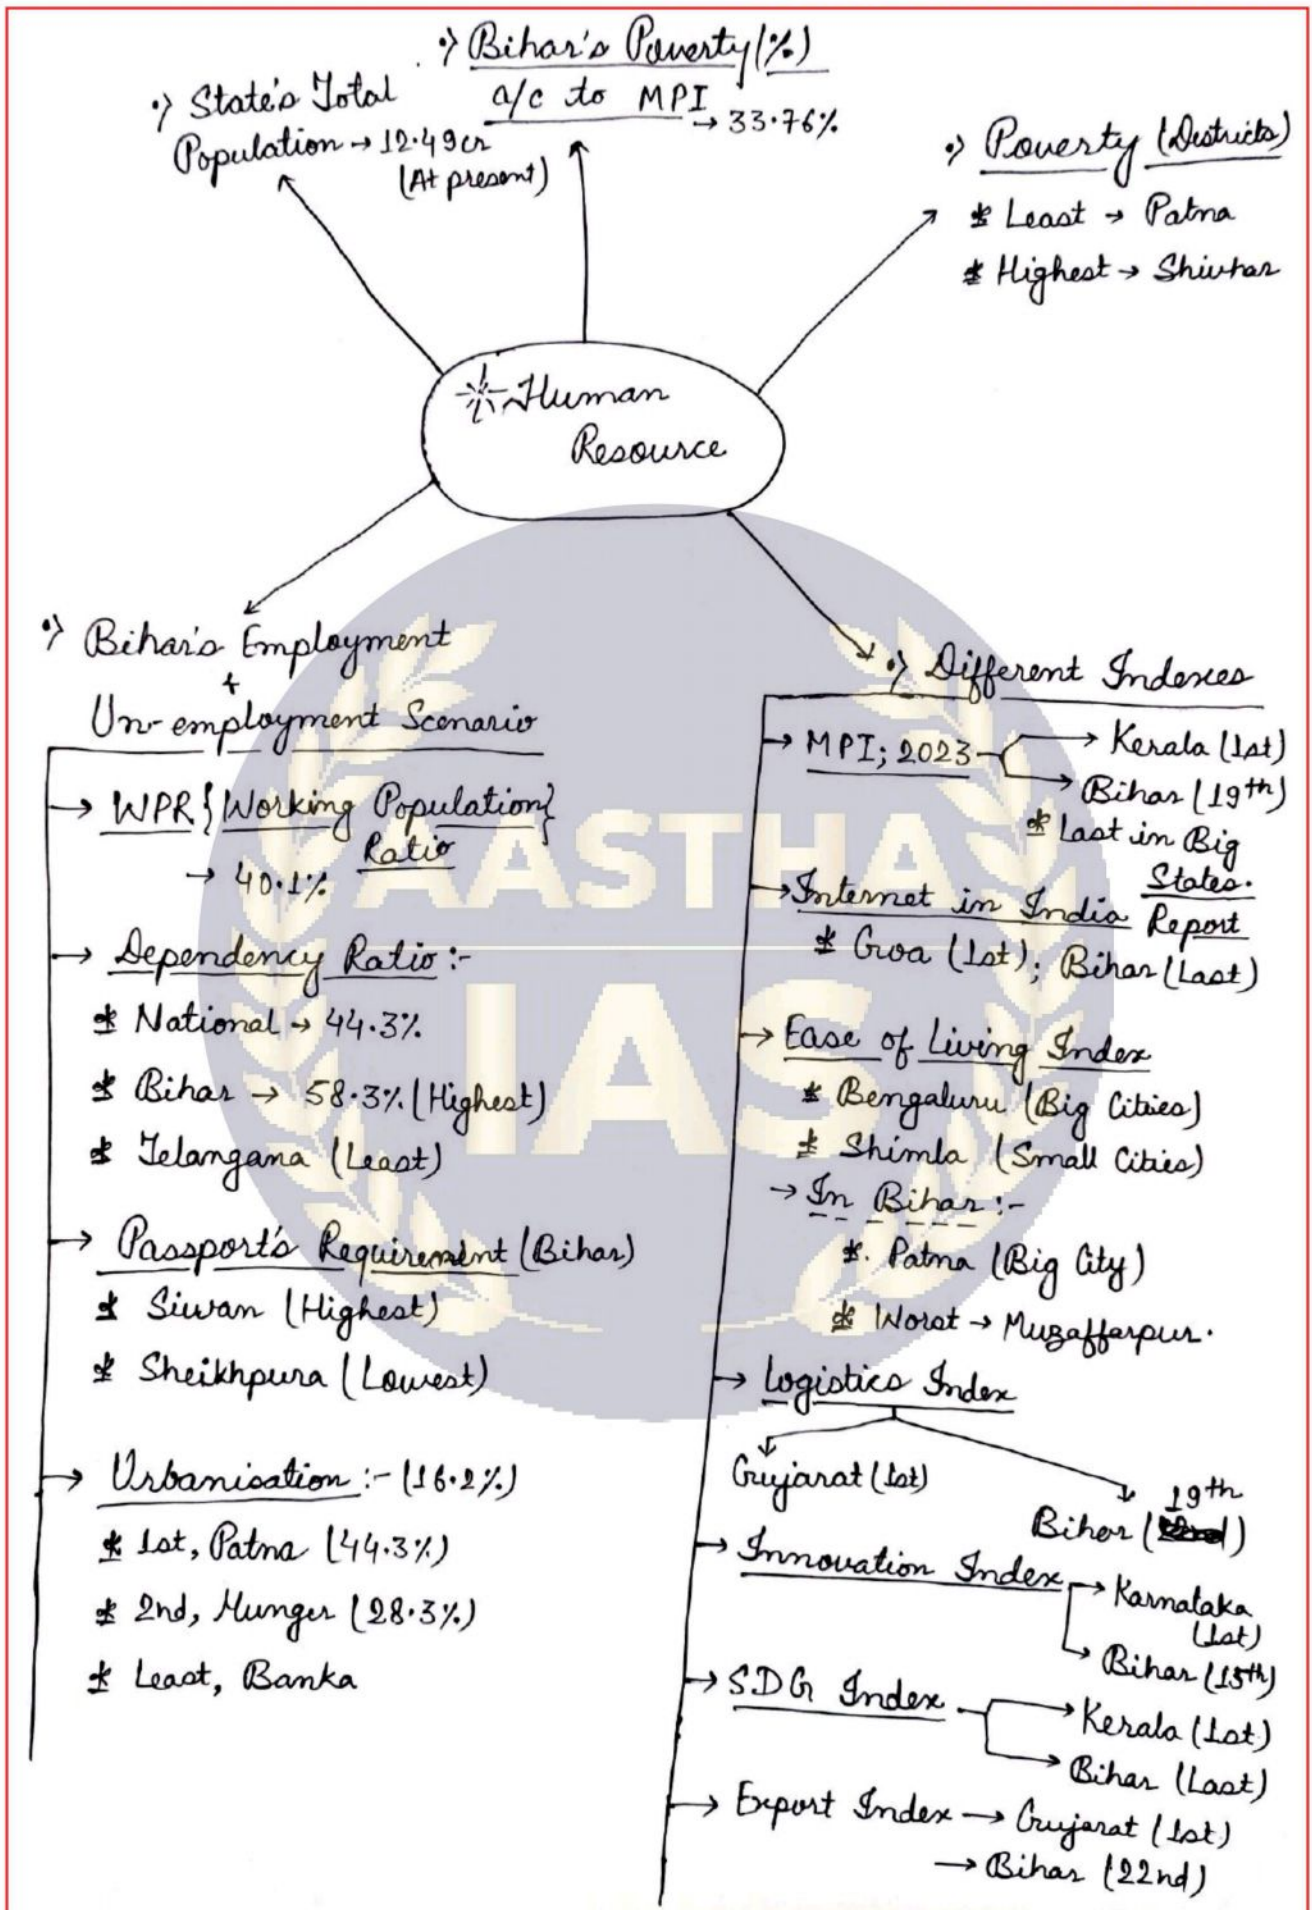 •) Bihar's Poverty (%)
a/c to MPI → 33.76%
•) State's Total
Population → 12.49 cr
(At present)
•) Poverty (Districts)
* Least → Patna
* Highest → Shivhar
* Human
Resource
•) Bihar's Employment
+
Un-employment Scenario
→ WPR {Working Population}
Ratio
→ 40.1%
→ Dependency Ratio :-
* National → 44.3%
* Bihar → 58.3% (Highest)
* Telangana (Least)
→ Passport's Requirement (Bihar)
* Siwan (Highest)
* Sheikhpura (Lowest)
→ Urbanisation :- (16.2%)
* 1st, Patna (44.3%)
* 2nd, Munger (28.3%)
* Least, Banka
•) Different Indexes
→ MPI; 2023 → Kerala (1st)
→ Bihar (19th)
* Last in Big
States.
→ Internet in India Report
* Goa (1st); Bihar (Last)
→ Ease of Living Index
* Bengaluru (Big Cities)
* Shimla (Small Cities)
→ In Bihar :-
*. Patna (Big City)
* Worst → Muzaffarpur.
→ Logistics Index
Gujarat (1st)
19th
Bihar ( )
→ Innovation Index → Karnataka
(1st)
Bihar (15th)
→ SDG Index → Kerala (1st)
→ Bihar (Last)
→ Export Index → Gujarat (1st)
→ Bihar (22nd)
AASTHA
IAS